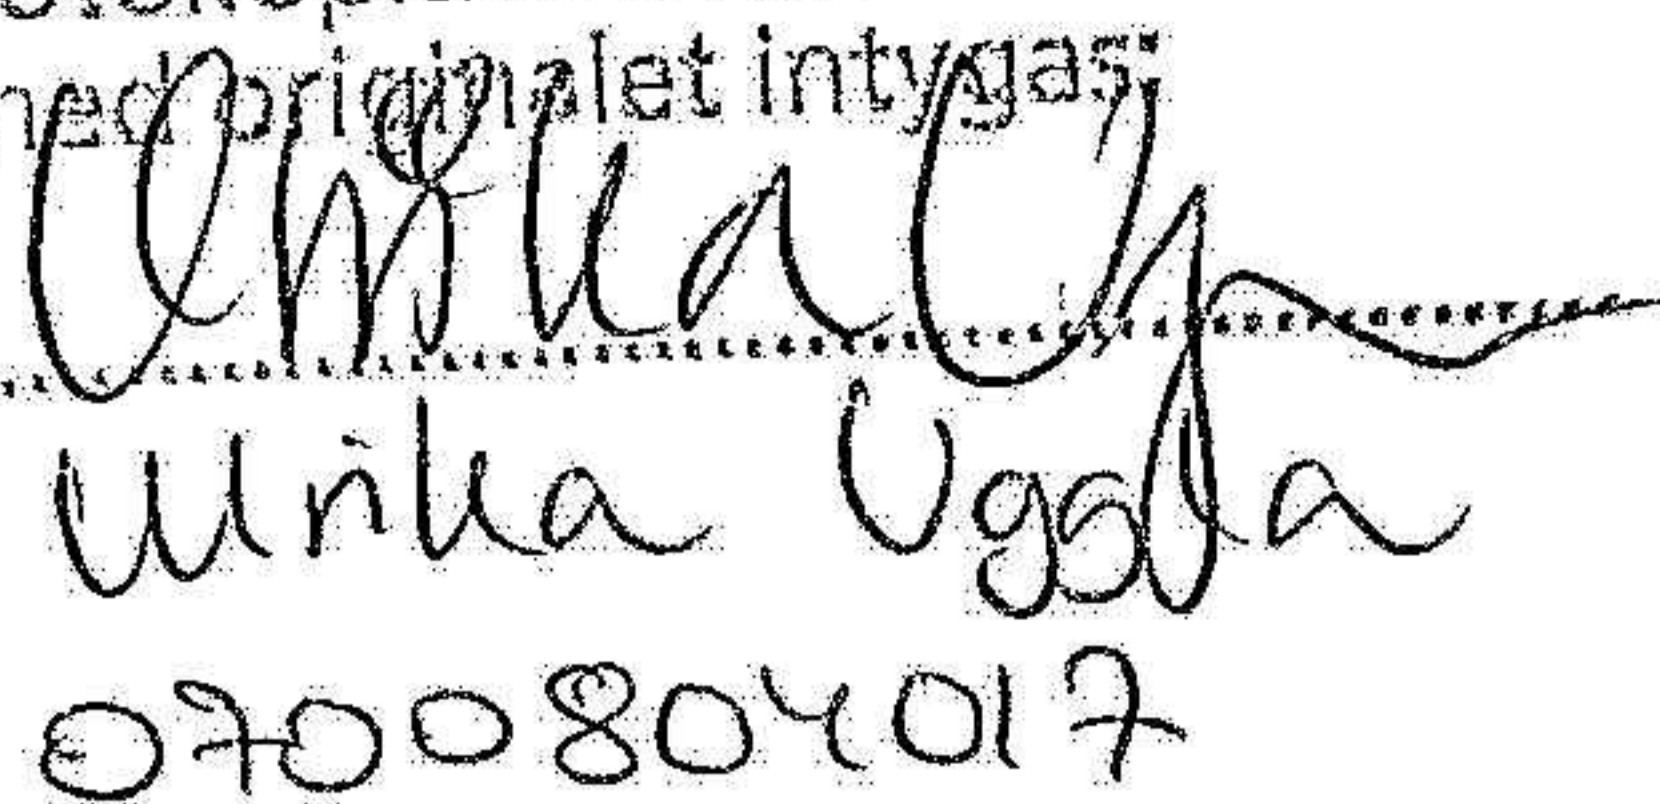 med originalet intygas:
Ulrika Ug
Ulrika Uggla
0700804017